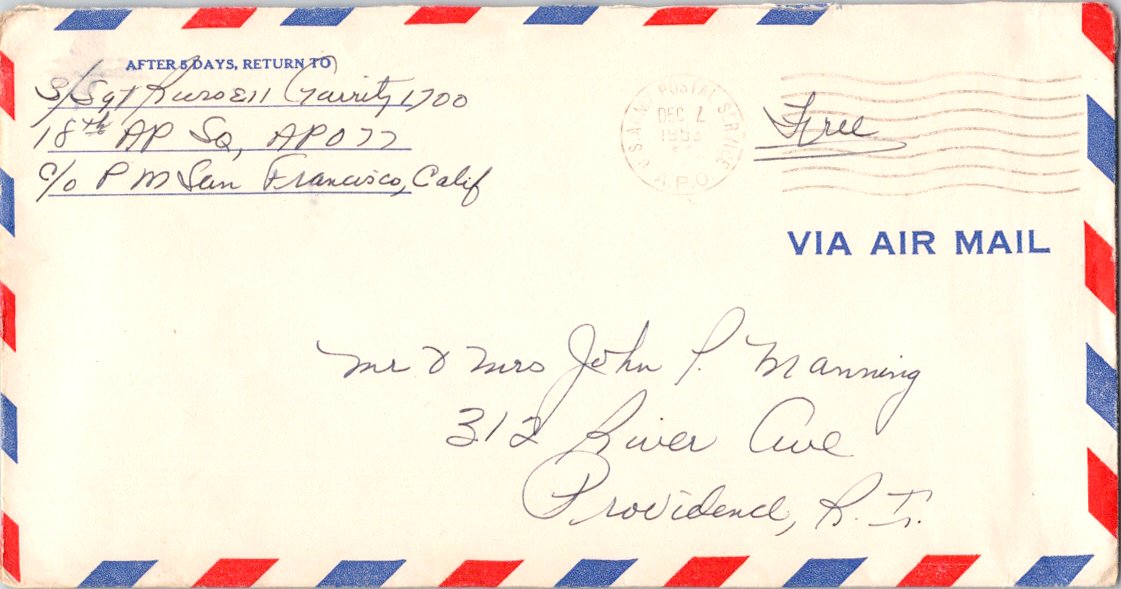 AFTER 5 DAYS, RETURN TO
S/Sgt Russell Garrity 1700
18th AP Sq, APO 77
c/o P M San Francisco, Calif
U.S. ARMY POSTAL SERVICE
DEC 2
1953
A.P.O.
Free
VIA AIR MAIL
Mr & Mrs John P. Manning
312 River Ave
Providence, R. I.